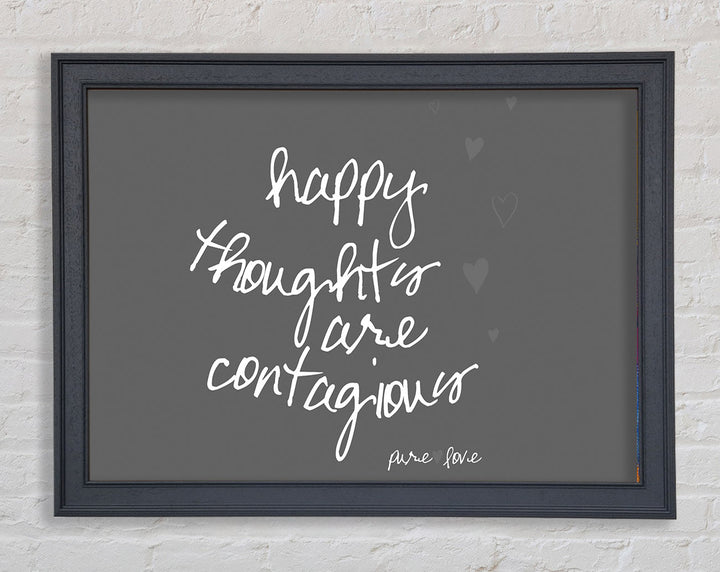 happy
thoughts
are
contagious
pure love